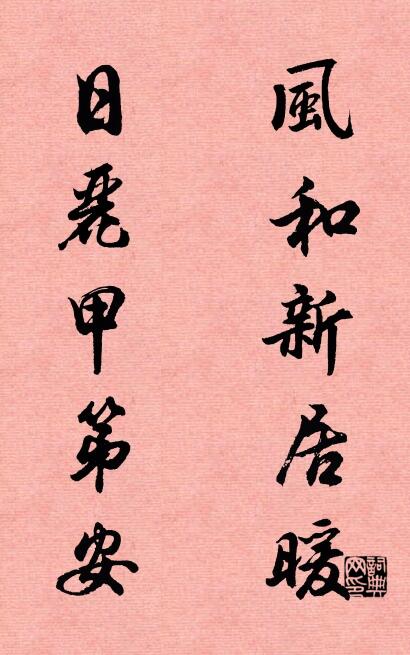 風和新居暖
日麗甲第安
詞典网印